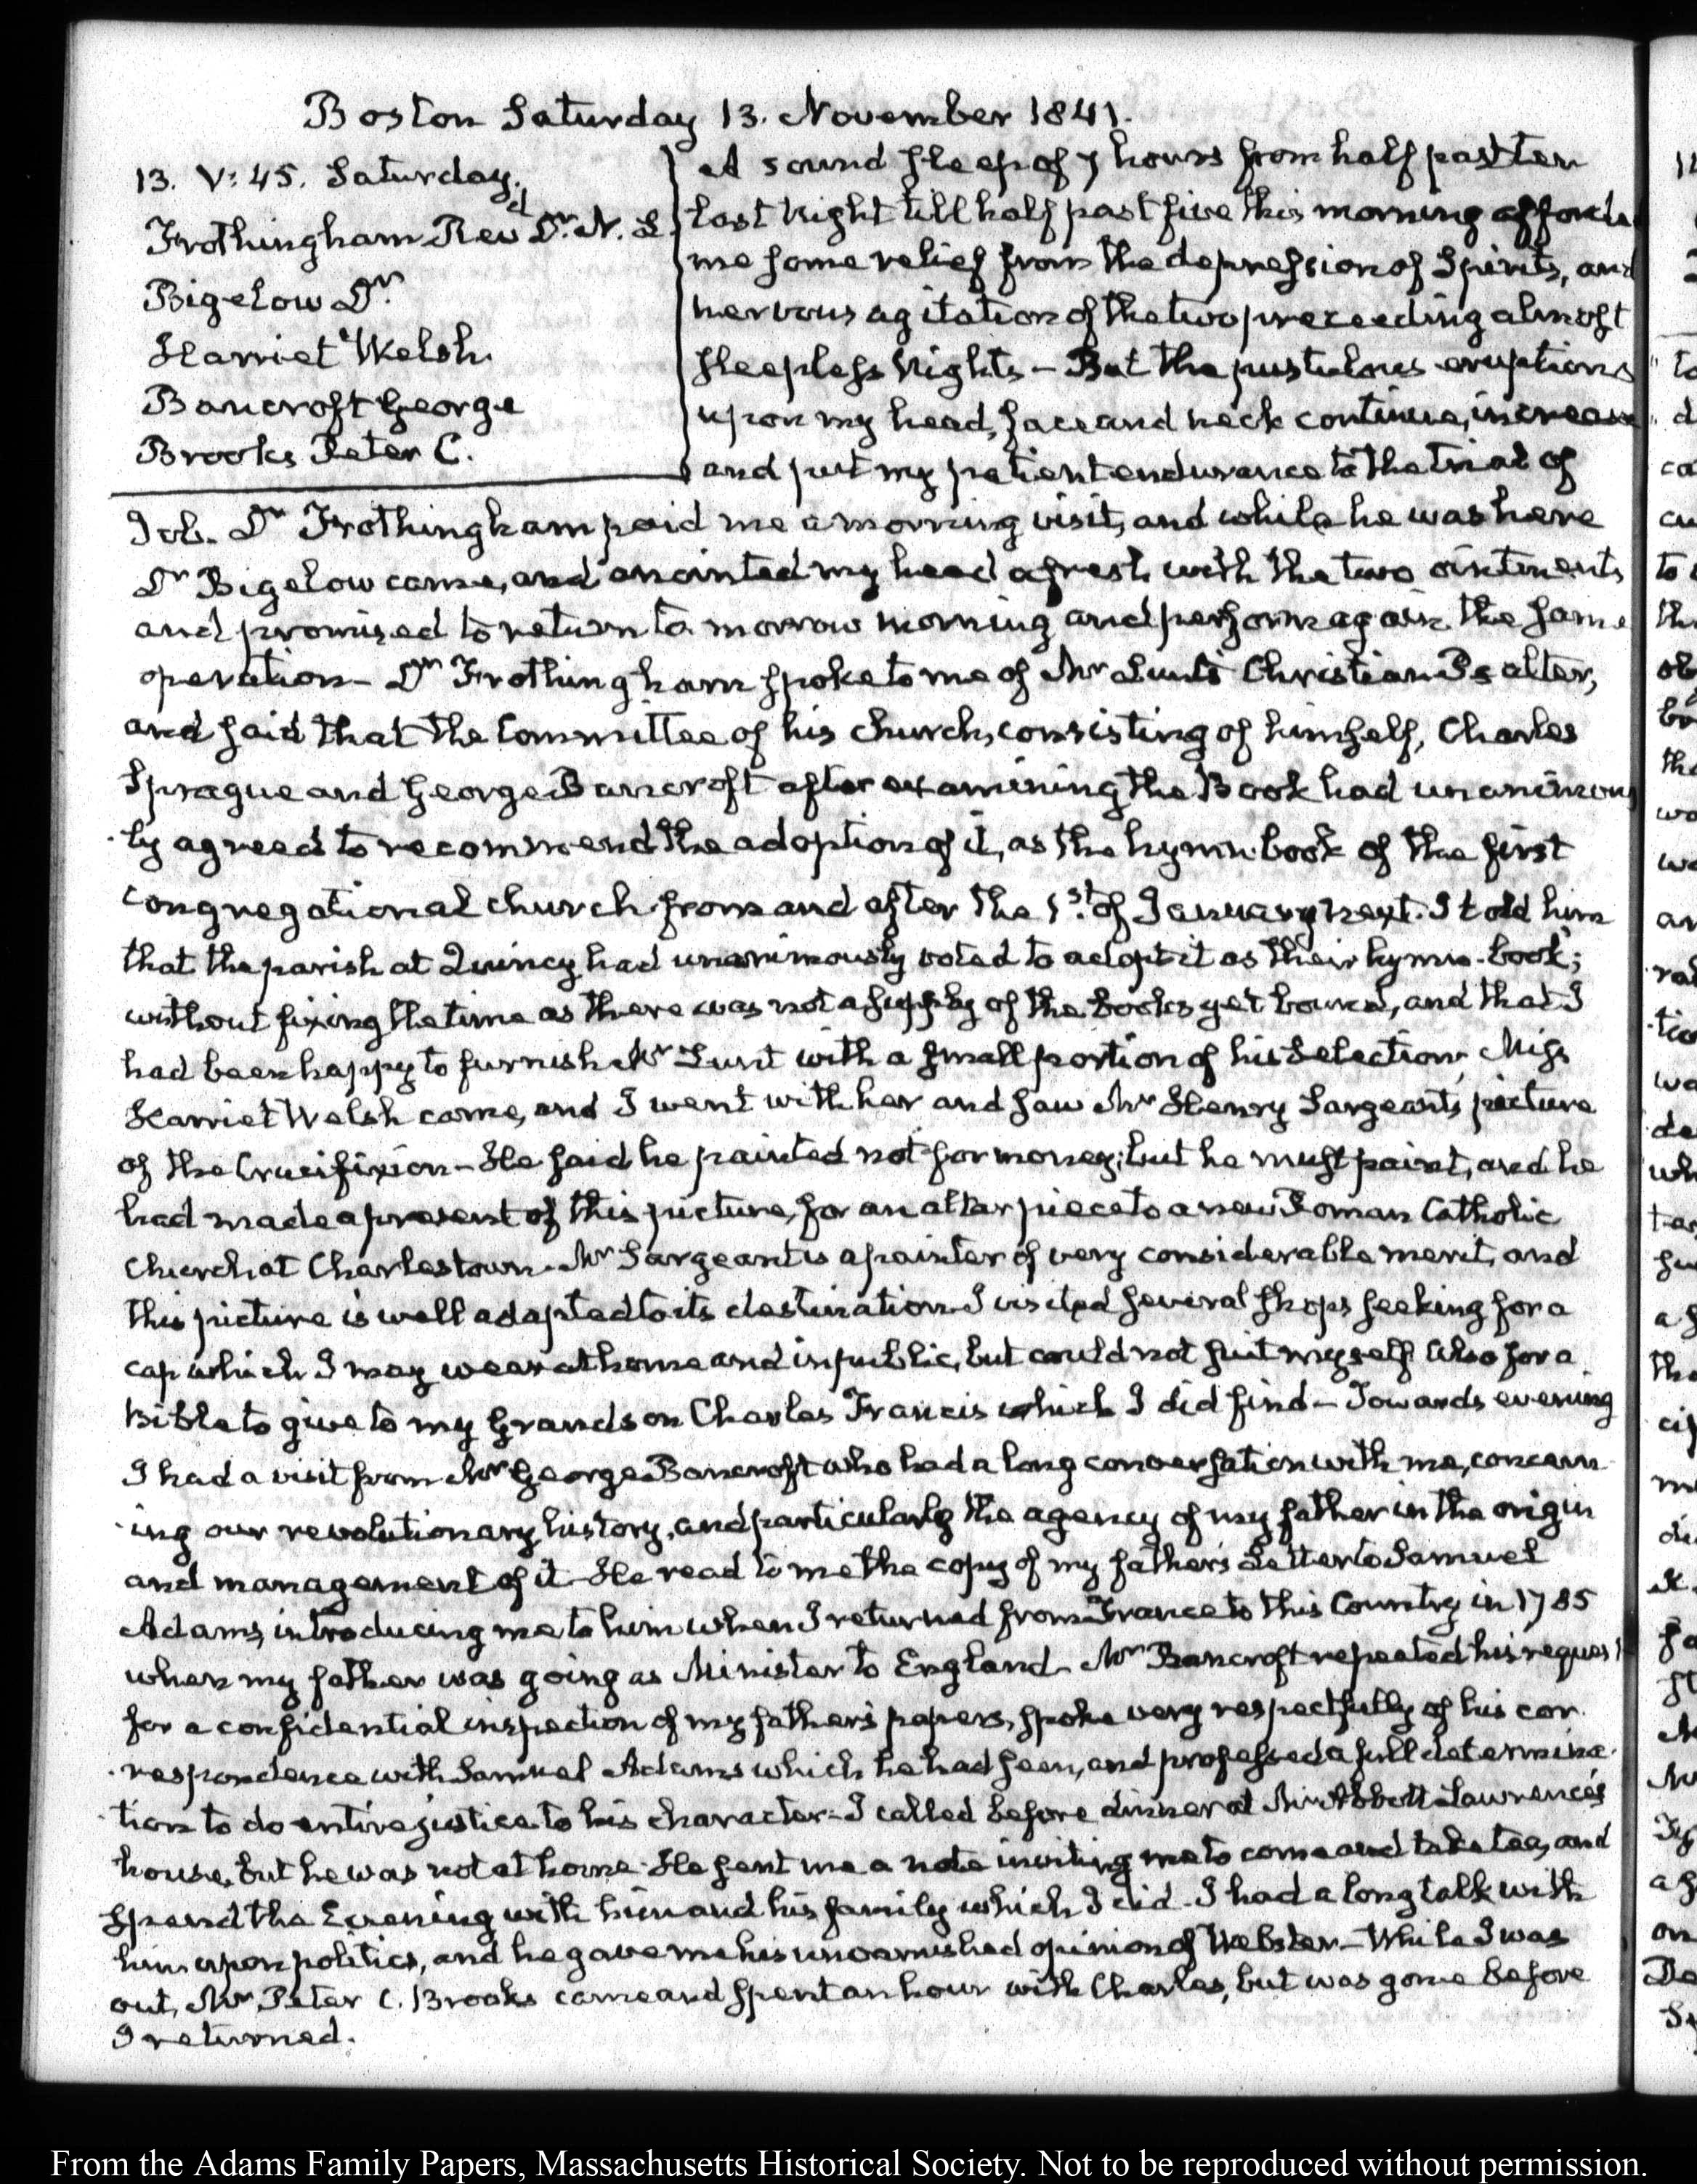 Boston Saturday 13. November 1841.
13. V: 45. Saturday.
Frothingham Revd Dr. N. L
Bigelow Dr.
Harriet Welsh
Bancroft George
Brooks Peter C.
A sound sleep of 7 hours from half past ten
last Night till half past five this morning affords
me some relief from the depression of Spirits, and
nervous agitation of the two preceeding almost
sleepless Nights – But the pustulous eruptions
upon my head, face and neck continue, increase
and put my patient endurance to the trial of
Job. Dr Frothingham paid me a morning visit, and while he was here
Dr Bigelow came, and anointed my head afresh with the two ointments,
and promised to return to morrow morning and perform again the same
operation – Dr Frothingham spoke to me of Mr Lunt's Christian Psalter,
and said that the Committee of his church, consisting of himself, Charles
Sprague and George Bancroft after examining the Book had unanimous
ly agreed to recommend the adoption of it, as the hymn-book of the first
Congregational church from and after the 1st. of January next. I told him
that the parish at Quincy had unanimously voted to adopt it as their hymn-book;
without fixing the time as there was not a supply of the books yet bound, and that I
had been happy to furnish Mr Lunt with a small portion of his Selection, Miss
Harriet Welsh came, and I went with her and saw Mr Henry Sargeant's picture
of the Crucifixion – He said he painted not for money; but he must paint, and he
had made a present of this picture, for an altar piece to a new Roman Catholic
Church at Charlestown. Mr Sargeant is a painter of very considerable merit, and
this picture is well adapted to its destination. I visited several shops seeking for a
cap which I may wear at home and in public, but could not suit myself Also for a
Bible to give to my Grandson Charles Francis which I did find – Towards evening
I had a visit from Mr George Bancroft who had a long conversation with me, concern
ing our revolutionary history, and particularly the agency of my father in the origin
and management of it – He read to me the copy of my father's Letter to Samuel
Adams, introducing me to him when I returned from France to this Country in 1785
when my father was going as Minister to England – Mr Bancroft repeated his request
for a confidential inspection of my father's papers, spoke very respectfully of his cor
respondence with Samuel Adams which he had seen, and professed a full determina
tion to do entire justice to his character – I called before dinner at Mr Abbott Lawrence's
house, but he was not at home. He sent me a note inviting me to come and take tea, and
spend the Evening with him and his family which I did – I had a long talk with
him upon politics, and he gave me his unvarnished opinion of Webster – While I was
out, Mr Peter C. Brooks came and spent an hour with Charles, but was gone before
I returned.
From the Adams Family Papers, Massachusetts Historical Society. Not to be reproduced without permission.